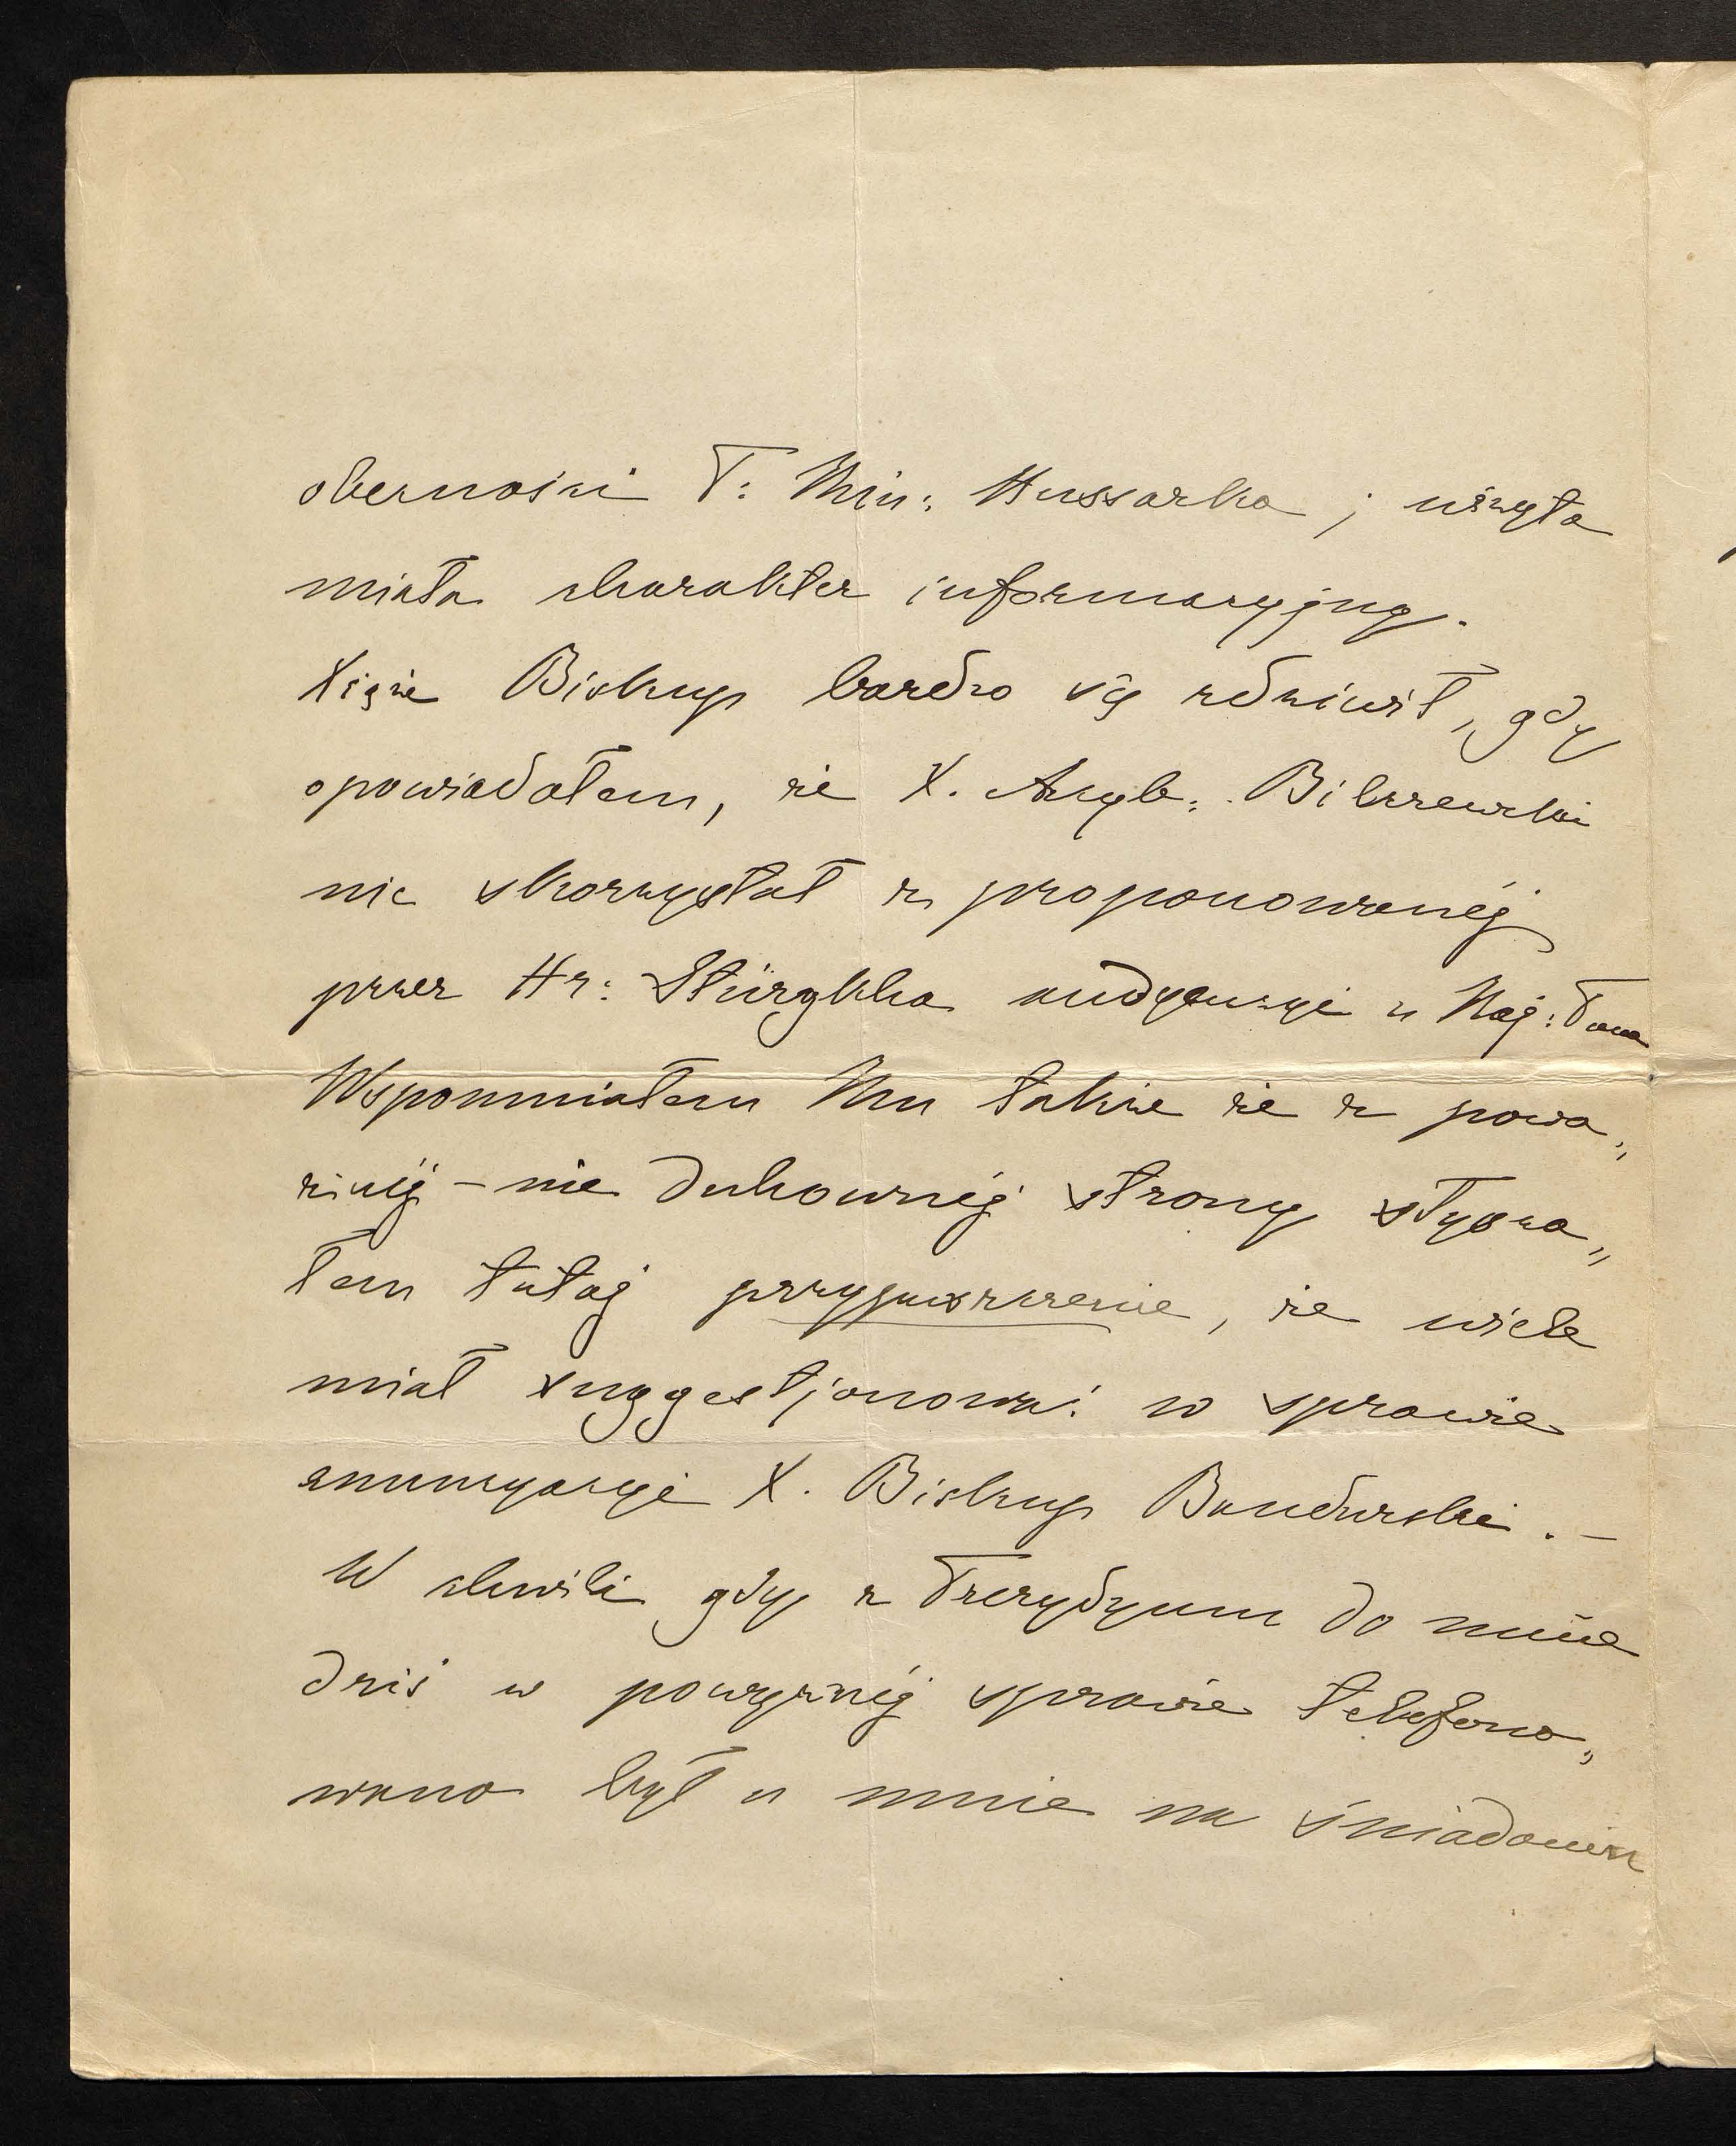 obecności P. Min: Hussarka; wizyta
miała charakter informacyjny.
Xiąże Biskup bardzo się zdziwił, gdy
opowiadałem, że X. Arcyb: Bilczewski
nie skorzystał z proponowanéj
przez Hr: Stürgkha audyencyi u Naj: Pana
Wspomniałem Mu także że z powa„
żnéj – nie duhownéj strony słysza„
łem tutaj przypuszczenie, że wiele
miał suggestjonować w sprawie
enuncyacyi X. Biskup Bandurski. –
W chwili gdy z Prezydyum do mnie
dziś w powyższéj sprawie telefono„
wano był u mnie na śniadaniu